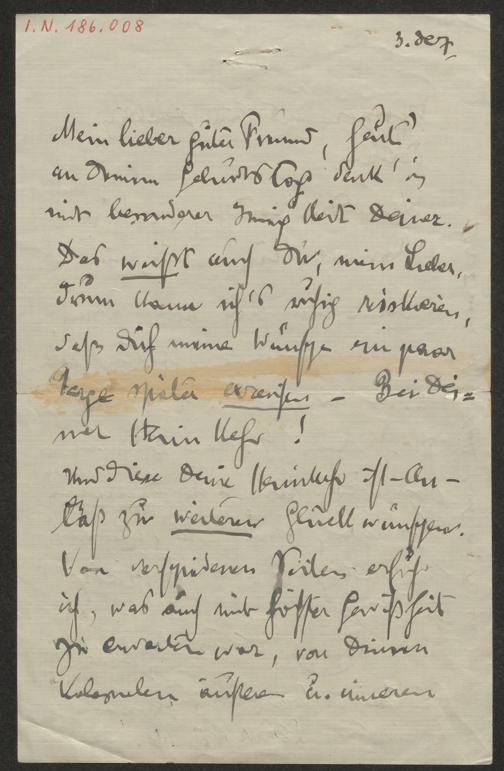 I.N. 186.008
3. Dez.
Mein lieber guter Freund, heut'
an Deinem Geburtstag denk' ich
mit besonderer Innigkeit Deiner.
Das weißt auch Du, mein Lieber,
drum kann ich's ruhig riskieren,
daß Dich meine Wünsche ein paar
Tage später erreichen – Bei Dei=
ner Heimkehr!
Und diese Deine Heimkehr ist – An-
laß zu weiteren Glückwünschen.
Von verschiedenen Seiten erfuhr
ich, was auch mit höchster Gewißheit
zu erwarten war, von Deinem
kolossalen äußeren u. inneren